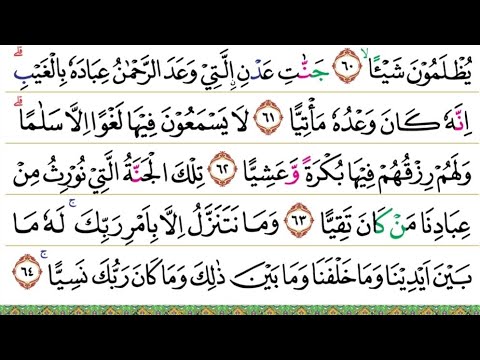 يُظْلَمُوْنَ شَيْئًا ۙ ٦٠ جَنّٰتِ عَدْنِ ِۨالَّتِيْ وَعَدَ الرَّحْمٰنُ عِبَادَهٗ بِالْغَيْبِ ۗ
اِنَّهٗ كَانَ وَعْدُهٗ مَأْتِيًّا ٦١ لَا يَسْمَعُوْنَ فِيْهَا لَغْوًا اِلَّا سَلٰمًا ۗ
وَلَهُمْ رِزْقُهُمْ فِيْهَا بُكْرَةً وَّعَشِيًّا ٦٢ تِلْكَ الْجَنَّةُ الَّتِيْ نُوْرِثُ مِنْ
عِبَادِنَا مَنْ كَانَ تَقِيًّا ٦٣ وَمَا نَتَنَزَّلُ اِلَّا بِاَمْرِ رَبِّكَ ۚ لَهٗ مَا
بَيْنَ اَيْدِيْنَا وَمَا خَلْفَنَا وَمَا بَيْنَ ذٰلِكَ وَمَا كَانَ رَبُّكَ نَسِيًّا ۚ ٦٤